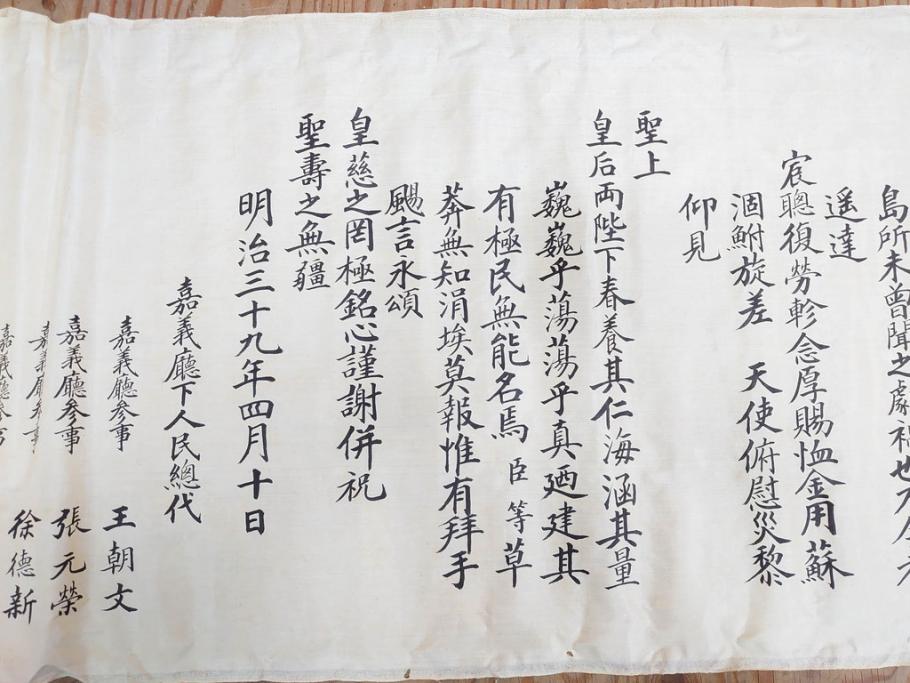 島所未曾聞之劇禍也
遥達
宸聰復勞軫念厚賜恤金用蘇
涸鮒旋差 天使俯慰災黎
仰見
聖上
皇后両陛下春養其仁海涵其量
巍巍乎蕩蕩乎真廼建其
有極民無能名焉 臣等草
莽無知涓埃莫報惟有拜手
颺言永頌
皇慈之罔極銘心謹謝併祝
聖壽之無疆
明治三十九年四月十日
嘉義廳下人民總代
嘉義廳参事 王朝文
嘉義廳参事 張元榮
嘉義廳参事 徐德新
嘉義廳参事